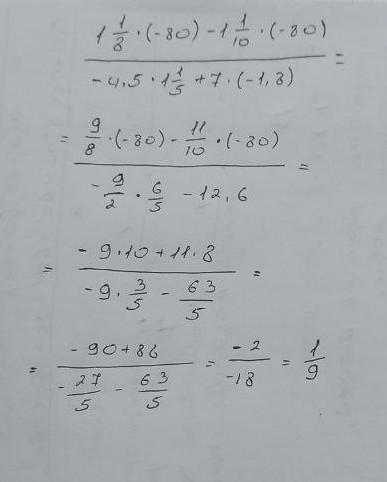 1 1/8 · (-80) - 1 1/10 · (-80)
-4,5 · 1 1/5 + 7 · (-1,8) =
= 9/8 · (-80) - 11/10 · (-80)
- 9/2 · 6/5 - 12,6 =
= - 9 · 10 + 11 · 8
- 9 · 3/5 - 63/5 =
= - 90 + 88
- 27/5 - 63/5 = - 2/-18 = 1/9